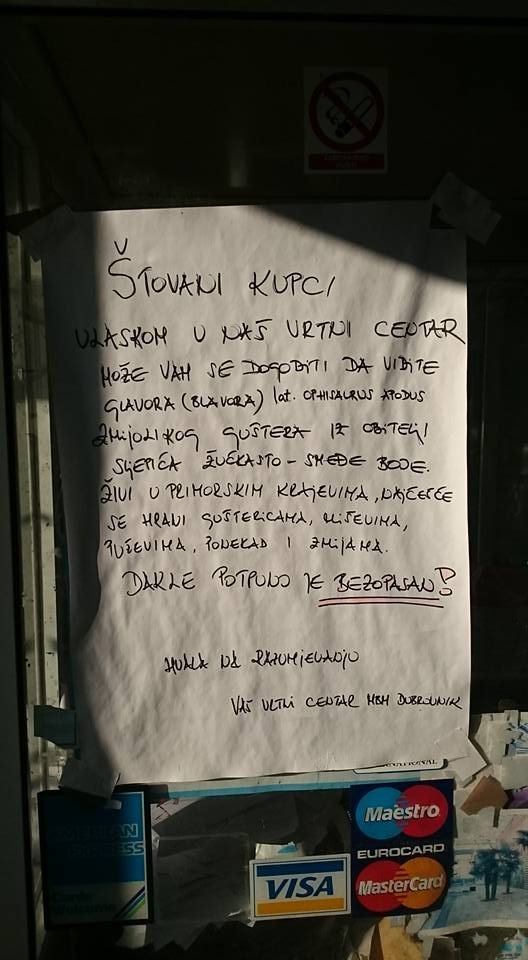 ŠTOVANI KUPCI
ULASKOM U NAŠ VRTNI CENTAR
MOŽE VAM SE DOGODITI DA VIDITE
GLAVORA (BLAVORA) lat. OPHISAURUS APODUS
ZMIJOLIKOG GUŠTERA IZ OBITELJI
SLJEPIĆA ŽUĆKASTO - SMEĐE BOJE.
ŽIVI U PRIMORSKIM KRAJEVIMA, NAJČEŠĆE
SE HRANI GUŠTERICAMA, MIŠEVIMA,
PUŽEVIMA, PONEKAD I ZMIJAMA.
DAKLE POTPUNO JE BEZOPASAN!
HVALA NA RAZUMJEVANJU
VAŠ VRTNI CENTAR MBM DUBROVNIK
AMERICAN
EXPRESS
Cards
Welcome
VISA
Maestro
EUROCARD
MasterCard